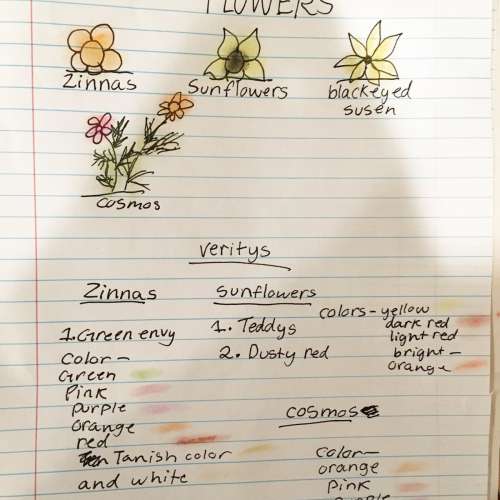 FLOWERS
Zinnas
Sunflowers
blackeyed
susen
cosmos
Veritys
Zinnas
1. Green envy
color-
Green
Pink
purple
orange
red
Tanish color
and white
Sunflowers
1. Teddys
2. Dusty red
colors-yellow
dark red
light red
bright-
orange
cosmos
color-
orange
pink
purple